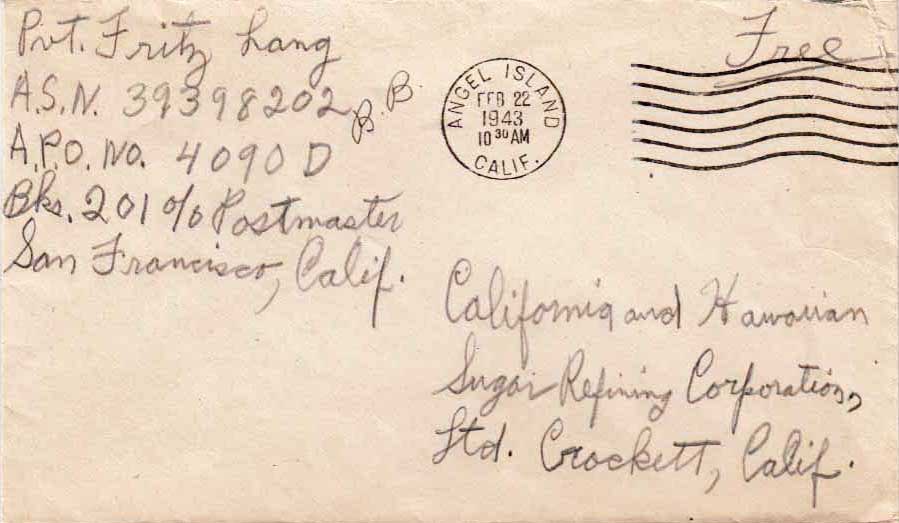 Pvt. Fritz Lang
A.S.N. 39398202
B.B.
A.P.O. No. 4090 D
Bks. 201 % Postmaster
San Francisco, Calif.
ANGEL ISLAND
FEB 22
1943
10 30 AM
CALIF.
Free
California and Hawaiian
Sugar Refining Corporation,
Ltd. Crockett, Calif.